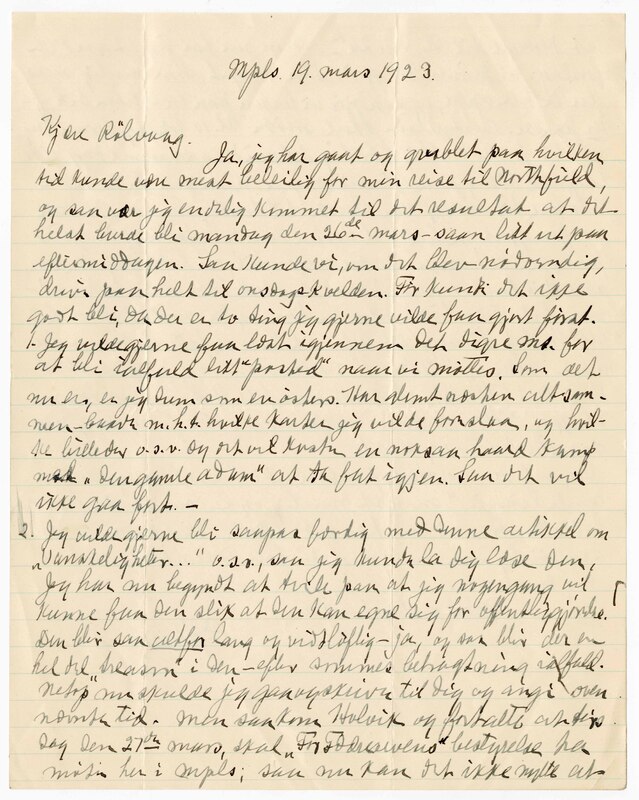 Mpls. 19. mars 1923.
Kjære Rölvaag.
Ja, jeg har gaat og grublet paa hvilken
tid kunde være mest beleilig for min reise til Northfield,
og saa er jeg endelig kommet til det resultat at det
helst burde bli mandag den 26de mars – saan litt ut paa
eftermiddagen. Saa kunde vi, om det blev nødvendig,
drive paa helt til onsdagskvelden. Før kunde det ikke
godt bli, da der er to ting jeg gjerne vilde faa gjort først.
1. Jeg vilde gjerne faa læst igjennem det digre ms. for
at bli ialfald litt "posted" naar vi møttes. Som det
nu er, er jeg dum som en østers. Har glemt næsten altsam-
men – baade m.h.t. hvilke karter jeg vilde foreslaa, og hvil-
ke billeder o.s.v. Og det vil koste en noksaa haard kamp
med "den gamle adam" at ta fat igjen. Saa det vil
ikke gaa fort. –
2. Jeg vilde gjerne bli saapas færdig med denne artikkel om
"Vanskeligheter..." o.s.v., saa jeg kunde la dig læse den.
Jeg har nu begyndt at tvile paa at jeg nogengang vil
kunne faa den slik at den kan egne sig for offentliggjørelse.
Den blir saa altfor lang og vidløftig – ja, og saa blir der en
hel del "treason" i den – efter sommes betragtning ialfald.
Netop nu skulde jeg gaa og skrive til dig og angi oven
nævnte tid. Men saa kom Holvik og fortalte at tirs
dag den 27de mars, skal "For Fædrearven"s bestyrelse ha
møte her i Mpls; saa nu kan det ikke nytte at